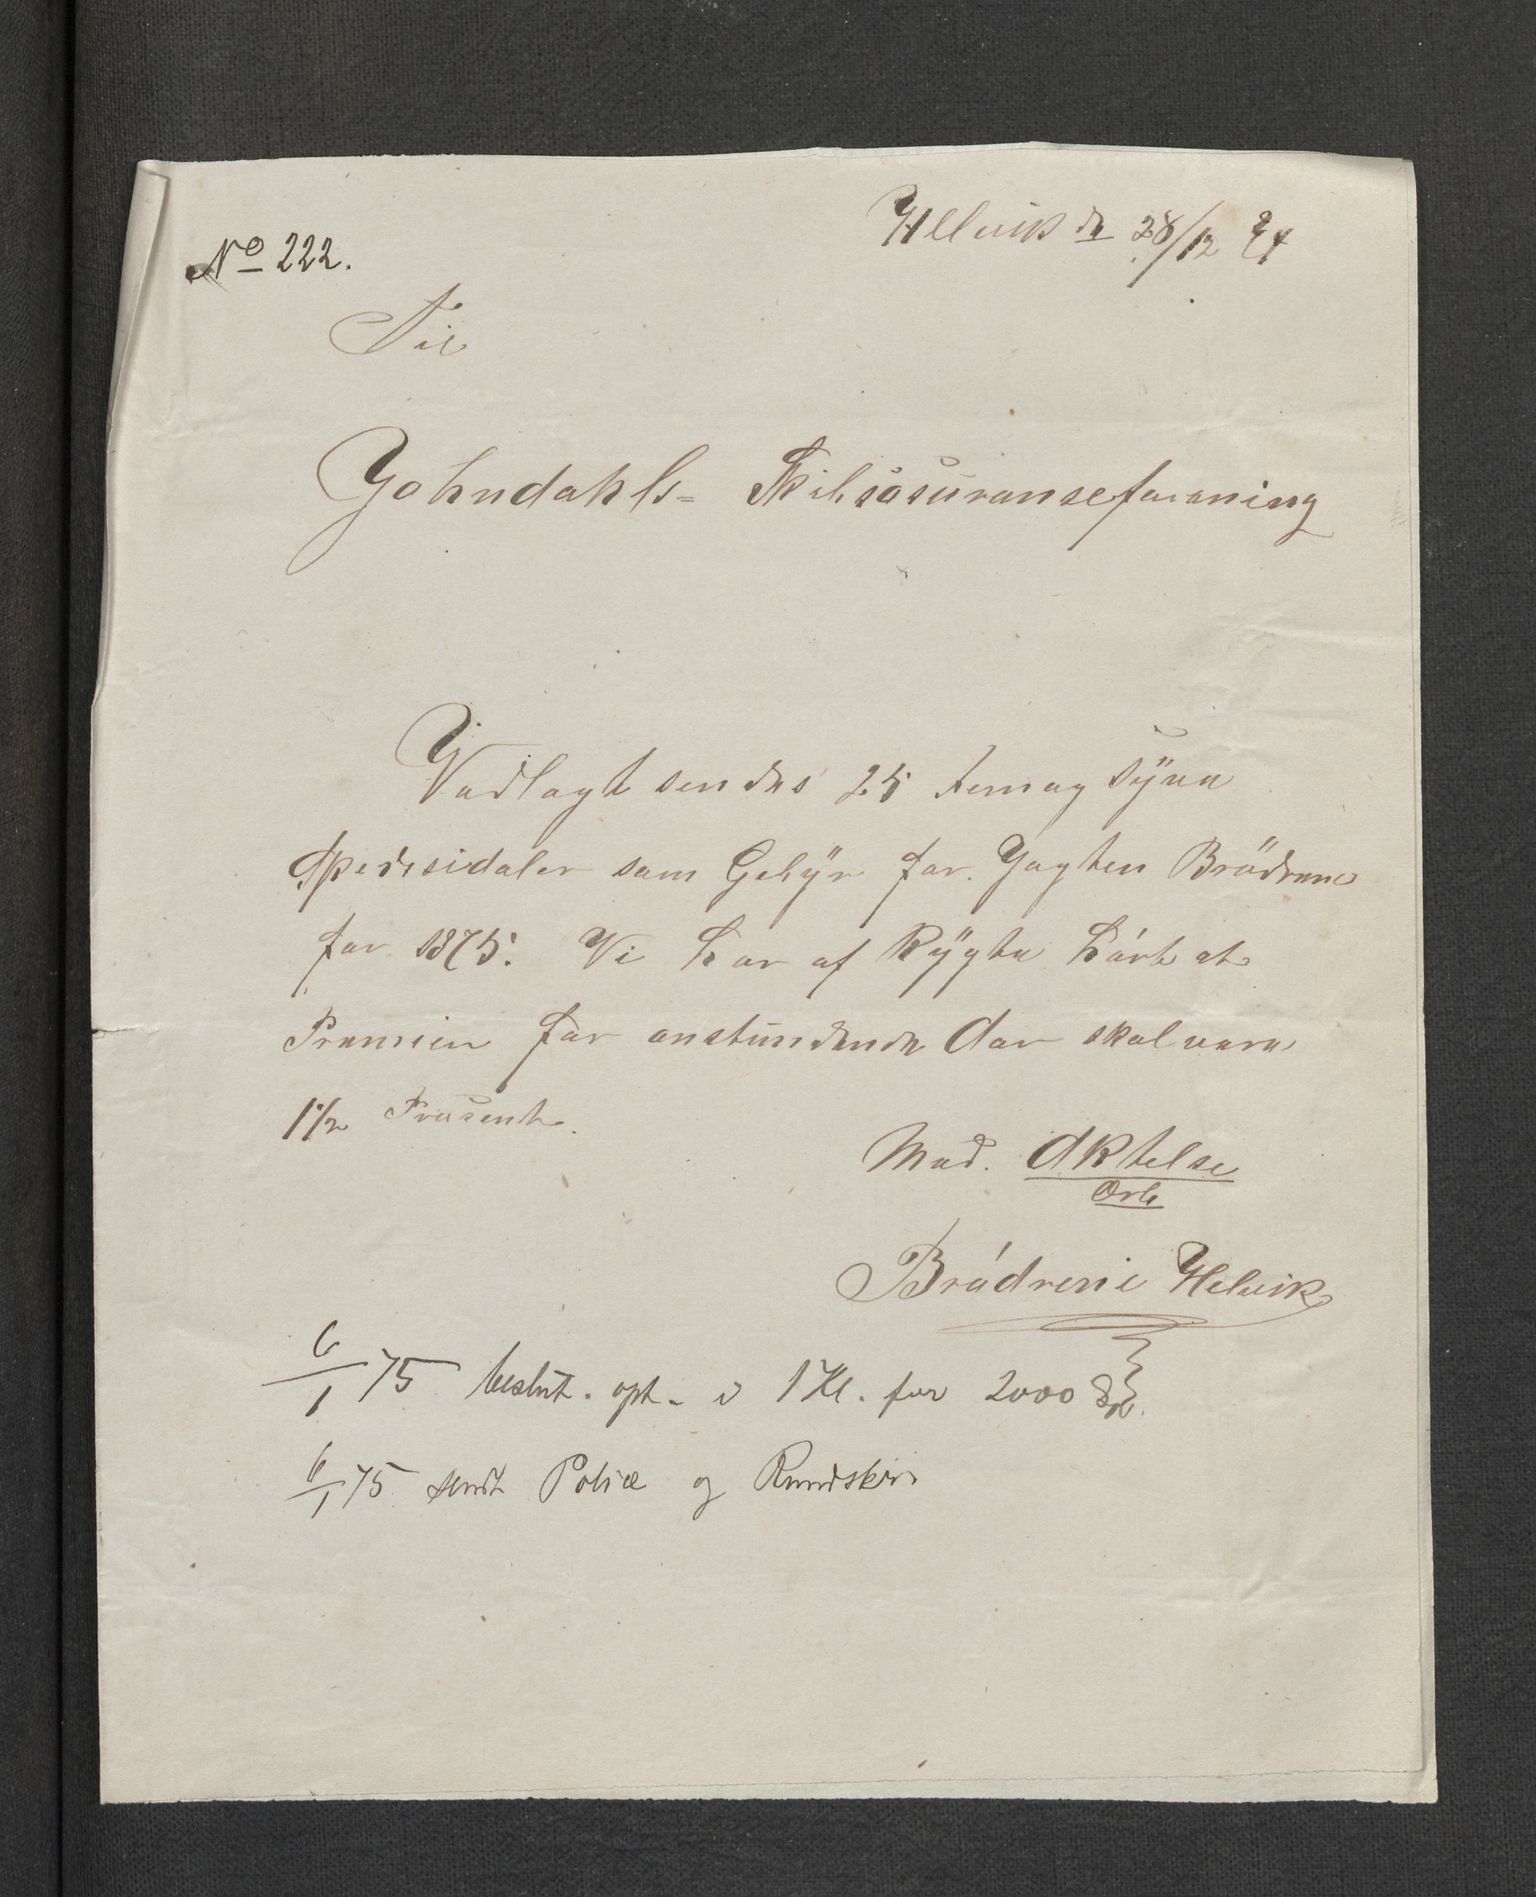 Hellvik de 28/12 74
No 222.
Til
Johndahls- Skibsasuranseforening
Vedlagt sendes 25 Femog tÿve
Spedesidaler som Gebÿr for Jagten Brödrene
for 1875. Vi har af Rÿgte hört at
Premien for anstundende Aar skal være
1 1/2 Prosent.
Med. Aktelse
Erb
Brödrene Helvik
6/1 75 beslut. opt. i 1 Kl. for 2000 Spd.
6/1 75 sendt Police og Rundskr.